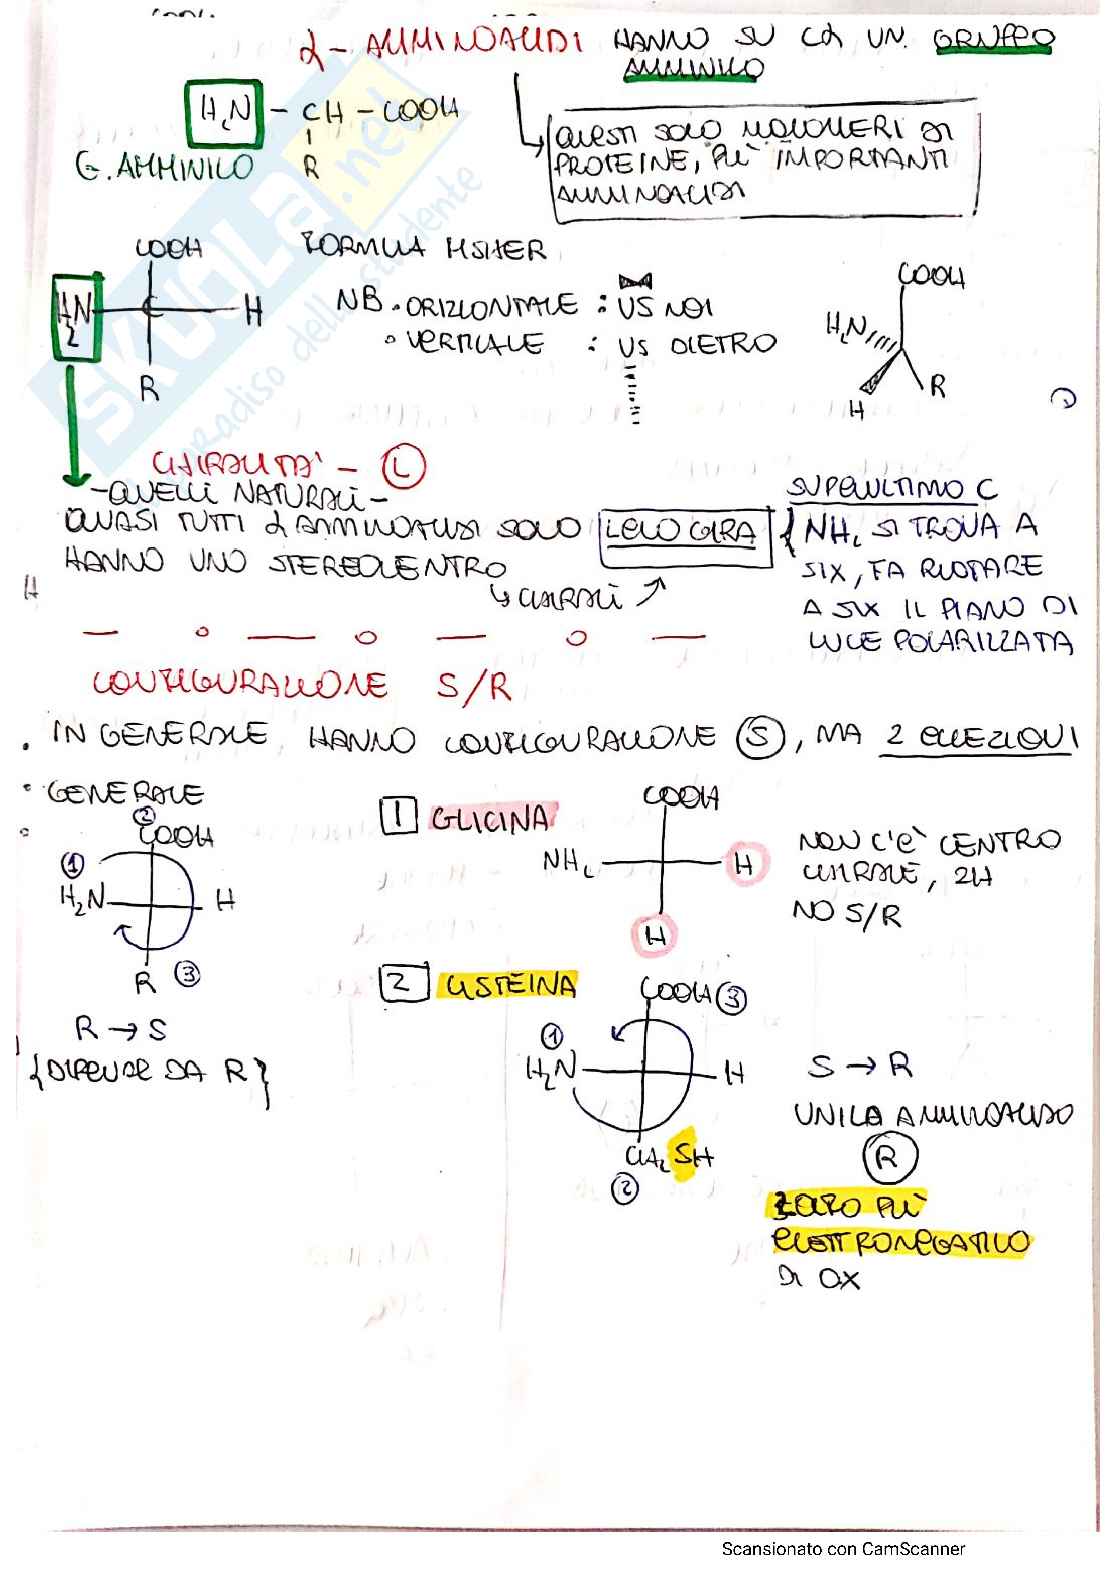 α-AMMINOACIDI HANNO SU Cα UN GRUPPO
AMMINICO
H₂N - CH - COOH
R
G. AMMINICO
QUESTI SONO MONOMERI DI
PROTEINE, PIÙ IMPORTANTI
AMMINOACIDI
FORMULA FISHER
COOH
H₂N C H
R
NB. ORIZZONTALE : VS NOI
• VERTICALE : VS DIETRO
COOH
H₂N
H R
CHIRALITÀ - L
- QUELLI NATURALI -
QUASI TUTTI α AMMINOACIDI SONO LEVOGIRA
HANNO UNO STEREOCENTRO
↳ CHIRALI
SUPENULTIMO C
{ NH₂ SI TROVA A
SIX, FA RUOTARE
A SIX IL PIANO DI
LUCE POLARIZZATA
CONFIGURAZIONE S/R
• IN GENERALE HANNO CONFIGURAZIONE S, MA 2 ECCEZIONI
• GENERALE
2
COOH
1
H₂N H
R 3
R → S
{DIPENDE DA R}
1 GLICINA
COOH
NH₂ H
H
NON C'È CENTRO
CHIRALE, 2H
NO S/R
2 CISTEINA
COOH 3
1
H₂N H
CH₂SH
2
S → R
UNICO AMMINOACIDO
R
ZOLFO PIÙ
ELETTRONEGATIVO
DI OX
SKUOLA.net
il paradiso dello studente
Scansionato con CamScanner